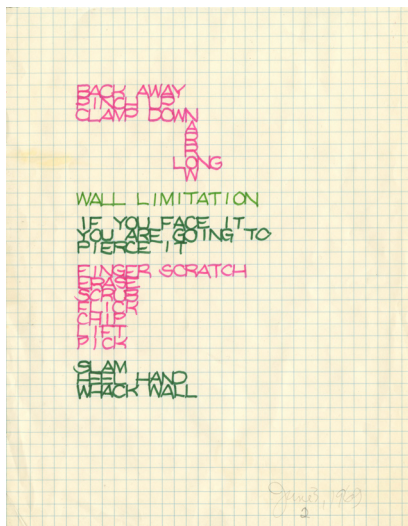 BACK AWAY
PINCH
CLAMP DOWN
A
R
R
LONG
W
WALL LIMITATION
IF YOU FACE IT
YOU ARE GOING TO
PIERCE IT
FINGER SCRATCH
ERASE
SCRUB
FLICK
CHIP
LIFT
PICK
SLAM
HEEL HAND
WHACK WALL
June 3,
2